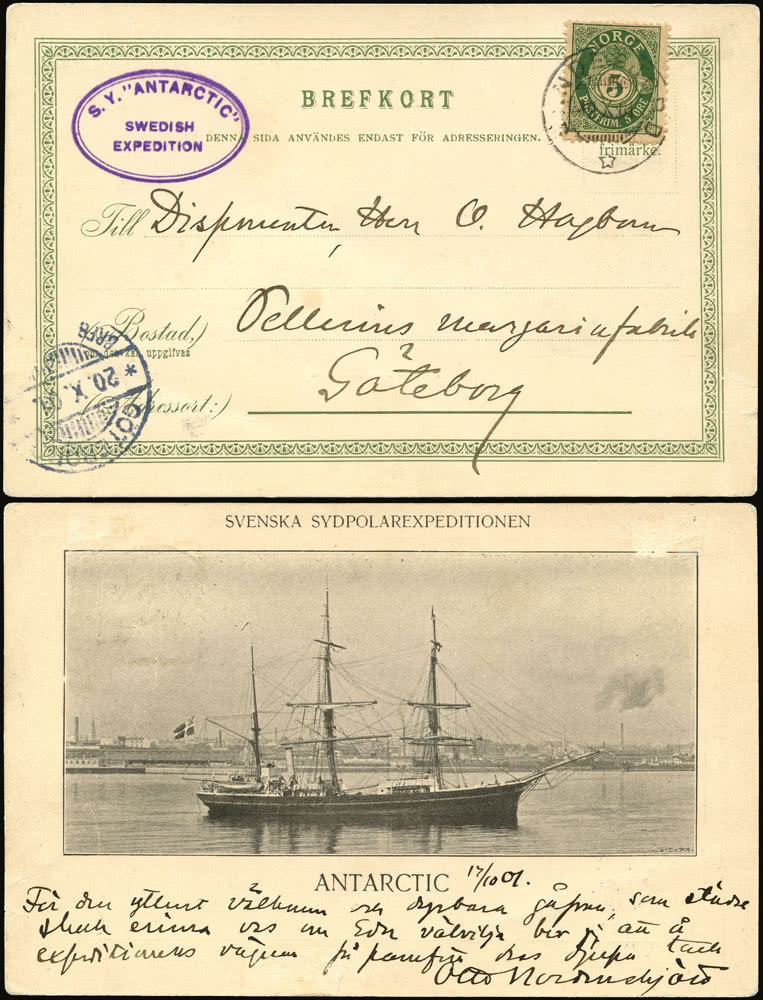 S. Y. "ANTARCTIC"
SWEDISH
EXPEDITION
BREFKORT
DENNA SIDA ANVÄNDES ENDAST FÖR ADRESSERINGEN.
NORGE
5
POSTFRIM. 5 ØRE
frimärke.
Till Disponenten, Herr O. Hagborn
(Bostad,)
Pellerins margarinfabrik
uppgifvas
Göteborg
(Adressort:)
BREFB
* 20. X. 01
GÖTEBORG
SVENSKA SYDPOLAREXPEDITIONEN
ANTARCTIC 17/10 01.
För den ytterst välkomna och dyrbara gåfvan, som städse
skall erinra oss om Eder välvilja ber jag att å
expeditionens vägnar få framföra dess djupa tack
Otto Nordenskjöld